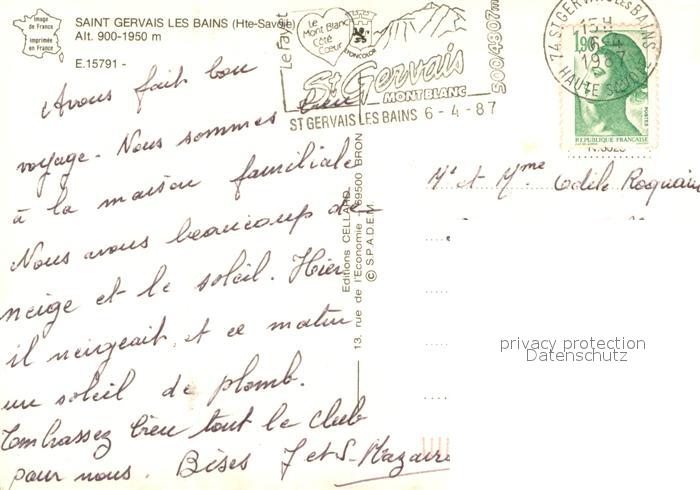 Image de France
imprimée en France
SAINT GERVAIS LES BAINS (Hte-Savoie)
Alt. 900-1950 m
E.15791 -
Le Fayet
Le Mont Blanc Côté Cœur
St Gervais
MONT BLANC
500/4807m
ST GERVAIS LES BAINS 6-4-87
74 ST GERVAIS LES BAINS
15 H
6-4
1987
HAUTE SAVOIE
1,90
POSTES
REPUBLIQUE FRANÇAISE
Avons fait bon
voyage. Nous sommes bien
à la maison familiale
Nous avons beaucoup de
neige et le soleil. Hier
il neigeait et ce matin
un soleil de plomb.
Embrassez bien tout le club
pour nous. Bises J et S. Mazaure
Editions CELLARD
13, rue de l'Economie - 69500 BRON
© S.P.A.D.E.M.
Mr et Mme Odile Roquain
privacy protection
Datenschutz